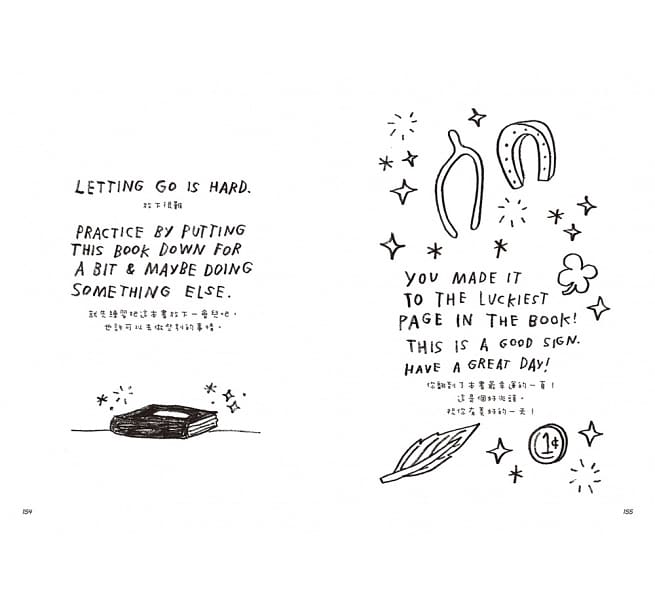 LETTING GO IS HARD.
放下很難
PRACTICE BY PUTTING
THIS BOOK DOWN FOR
A BIT & MAYBE DOING
SOMETHING ELSE.
就先練習把這本書放下一會兒吧,
也許可以去做些別的事情。
154
YOU MADE IT
TO THE LUCKIEST
PAGE IN THE BOOK!
THIS IS A GOOD SIGN.
HAVE A GREAT DAY!
你翻到了本書最幸運的一頁!
這是個好兆頭。
祝你有美好的一天!
1¢
155